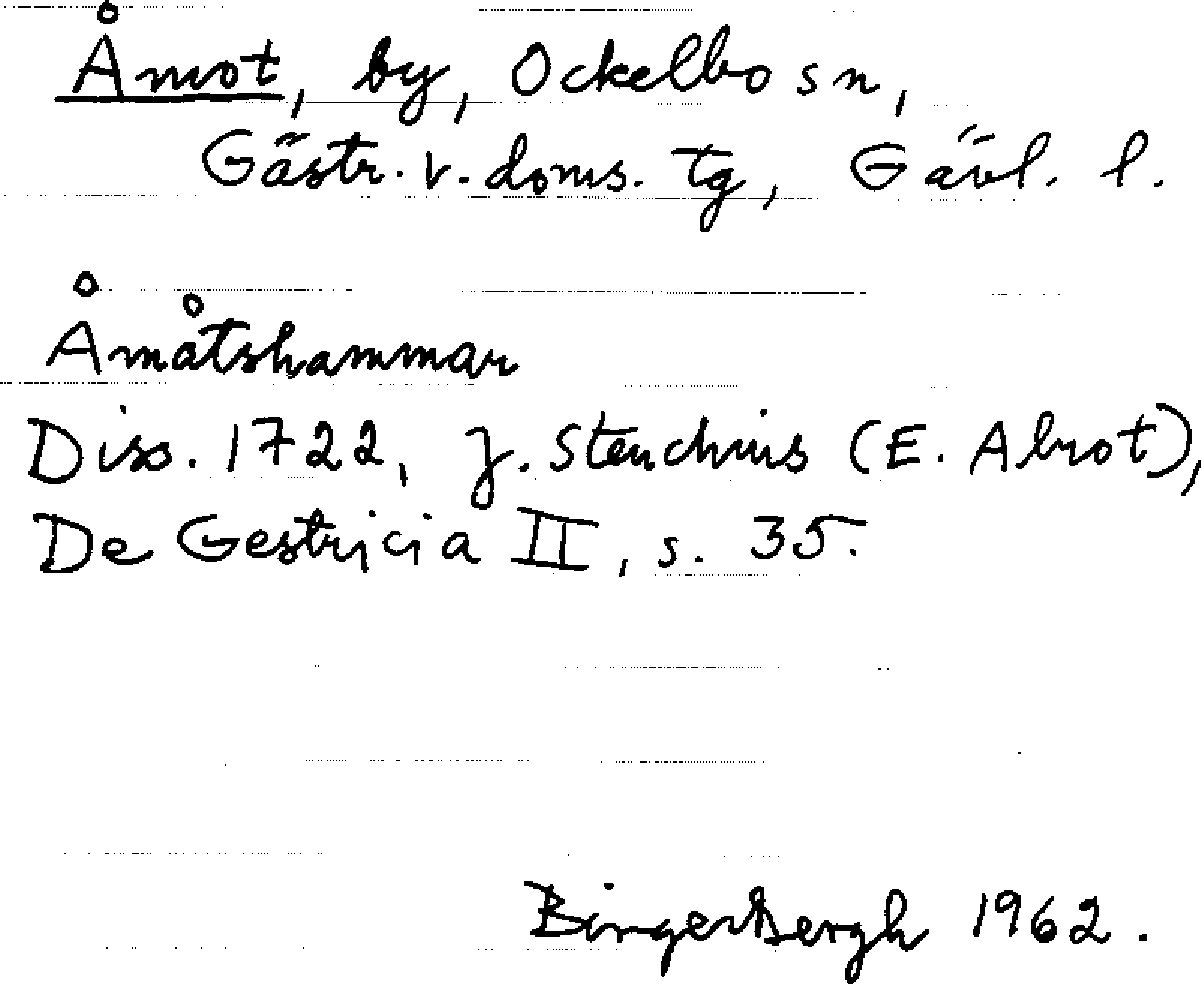 Åmot, by, Ockelbo sn,
Gästr. v. doms. tg, Gävl. l.
Åmåtshammar
Diss. 1722, J. Steuchius (E. Abrot),
De Gestricia II, s. 35.
Birger Bergh 1962.